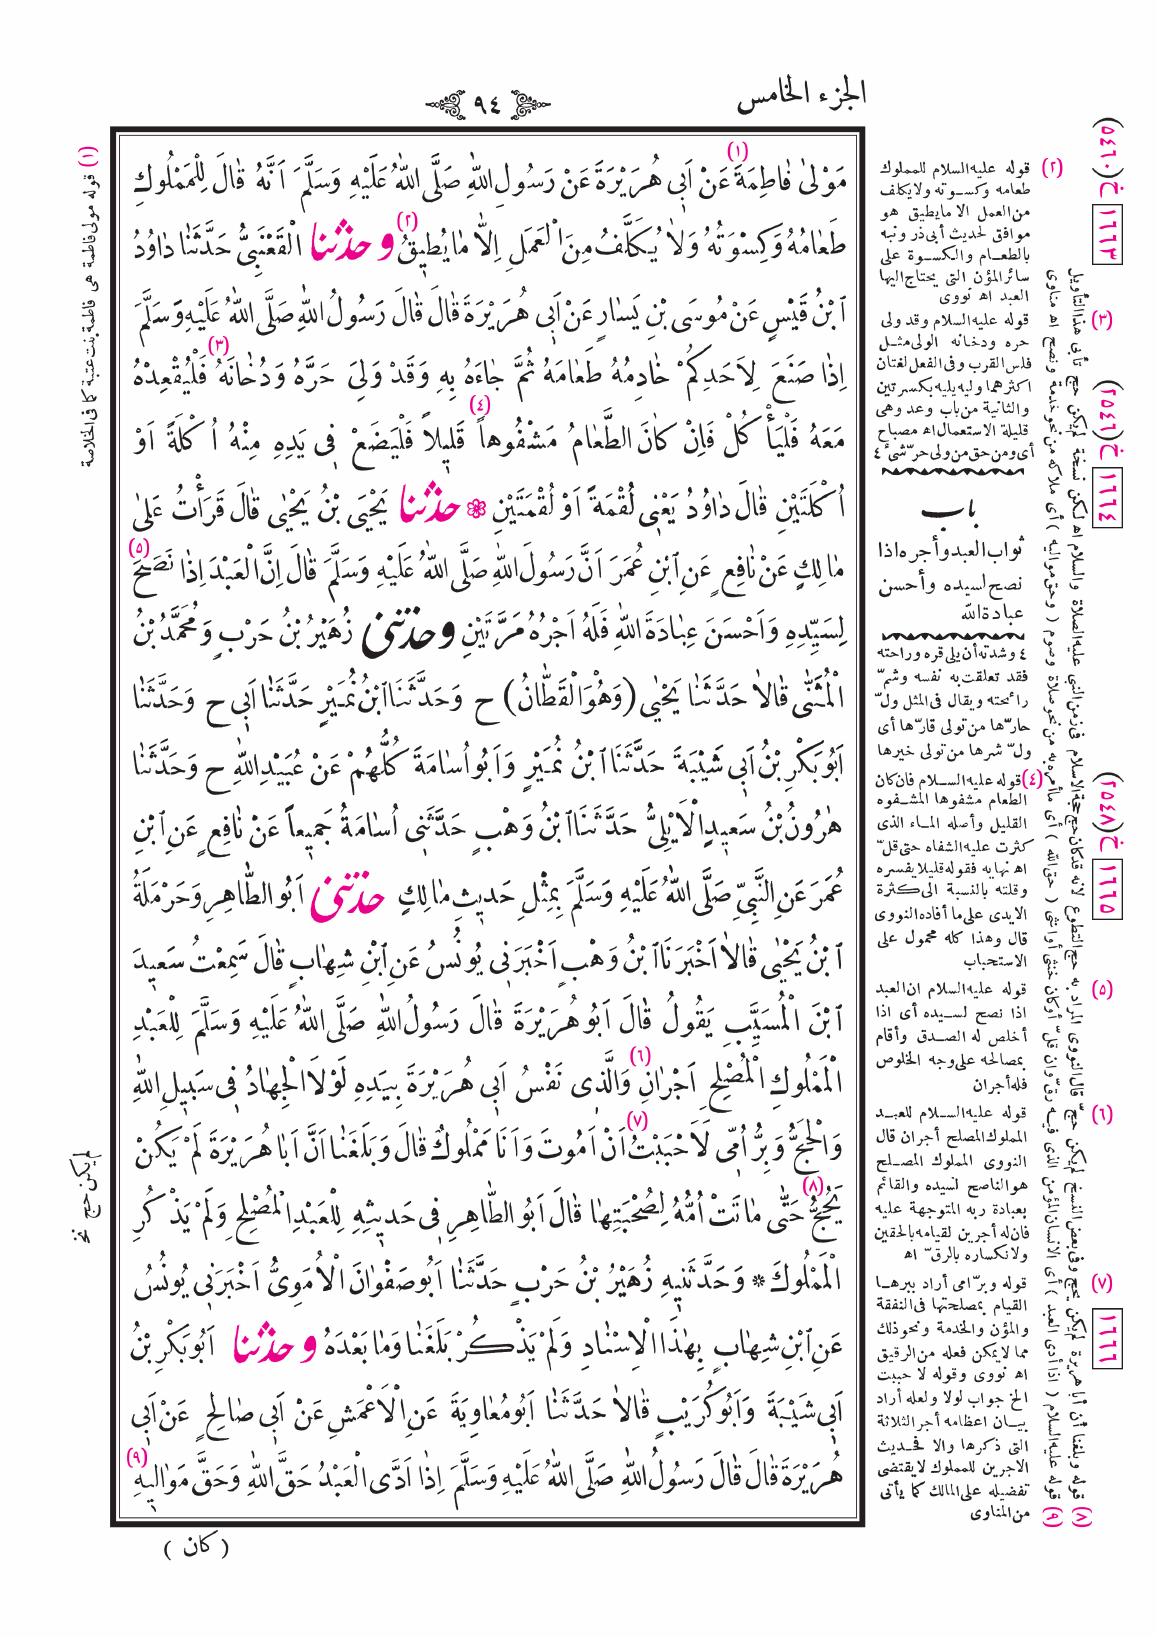 الجزء الخامس
٩٤
مَوْلىٰ فَاطِمَةَ (١) عَنْ اَبِى هُرَيْرَةَ عَنْ رَسُولِ اللهِ صَلَّى اللهُ عَلَيْهِ وَسَلَّمَ اَنَّهُ قَالَ لِلْمَمْلُوكِ
طَعَامُهُ وَكِسْوَتُهُ وَلاٰ يُكَلَّفُ مِنَ الْعَمَلِ اِلاّٰ مَا يُطِيقُ (٢) وحدثنا الْقَعْنَبِىُّ حَدَّثَنَا دَاوُدُ
ابْنُ قَيْسٍ عَنْ مُوسَى بْنِ يَسَارٍ عَنْ اَبِى هُرَيْرَةَ قَالَ قَالَ رَسُولُ اللهِ صَلَّى اللهُ عَلَيْهِ وَسَلَّمَ
اِذَا صَنَعَ لِاَحَدِكُمْ خَادِمُهُ طَعَامَهُ ثُمَّ جَاءَهُ بِهِ وَقَدْ وَلِىَ حَرَّهُ وَدُخَانَهُ (٣) فَلْيُقْعِدْهُ
مَعَهُ فَلْيَأْكُلْ فَاِنْ كَانَ الطَّعَامُ مَشْفُوهاً (٤) قَلِيلاً فَلْيَضَعْ فِى يَدِهِ مِنْهُ اُكْلَةً اَوْ
اُكْلَتَيْنِ قَالَ دَاوُدُ يَعْنِى لُقْمَةً اَوْ لُقْمَتَيْنِ ❀ حدثنا يَحْيَى بْنُ يَحْيٰى قَالَ قَرَأْتُ عَلىٰ
مَالِكٍ عَنْ نَافِعٍ عَنِ ابْنِ عُمَرَ اَنَّ رَسُولَ اللهِ صَلَّى اللهُ عَلَيْهِ وَسَلَّمَ قَالَ اِنَّ الْعَبْدَ اِذَا نَصَحَ (٥)
لِسَيِّدِهِ وَاَحْسَنَ عِبَادَةَ اللهِ فَلَهُ اَجْرُهُ مَرَّتَيْنِ وحدثنى زُهَيْرُ بْنُ حَرْبٍ وَمُحَمَّدُ بْنُ
الْمُثَنّٰى قَالاٰ حَدَّثَنَا يَحْيٰى (وَهُوَ الْقَطَّانُ) ح وَحَدَّثَنَا ابْنُ نُمَيْرٍ حَدَّثَنَا اَبِى ح وَحَدَّثَنَا
اَبُو بَكْرِ بْنُ اَبِى شَيْبَةَ حَدَّثَنَا ابْنُ نُمَيْرٍ وَاَبُو اُسَامَةَ كُلُّهُمْ عَنْ عُبَيْدِ اللهِ ح وَحَدَّثَنَا
هٰرُونُ بْنُ سَعِيدٍ الْاَيْلِىُّ حَدَّثَنَا ابْنُ وَهْبٍ حَدَّثَنِى اُسَامَةُ جَمِيعاً عَنْ نَافِعٍ عَنِ ابْنِ
عُمَرَ عَنِ النَّبِىِّ صَلَّى اللهُ عَلَيْهِ وَسَلَّمَ بِمِثْلِ حَدِيثِ مَالِكٍ حدثنى اَبُو الطَّاهِرِ وَحَرْمَلَةُ
ابْنُ يَحْيٰى قَالاٰ اَخْبَرَنَا ابْنُ وَهْبٍ اَخْبَرَنِى يُونُسُ عَنِ ابْنِ شِهَابٍ قَالَ سَمِعْتُ سَعِيدَ
ابْنَ الْمُسَيَّبِ يَقُولُ قَالَ اَبُو هُرَيْرَةَ قَالَ رَسُولُ اللهِ صَلَّى اللهُ عَلَيْهِ وَسَلَّمَ لِلْعَبْدِ
الْمَمْلُوكِ الْمُصْلِحِ اَجْرَانِ (٦) وَالَّذِى نَفْسُ اَبِى هُرَيْرَةَ بِيَدِهِ لَوْلاَ الْجِهَادُ فِى سَبِيلِ اللهِ
وَالْحَجُّ وَبِرُّ اُمِّى لَاَحْبَبْتُ (٧) اَنْ اَمُوتَ وَاَنَا مَمْلُوكٌ قَالَ وَبَلَغَنَا اَنَّ اَبَا هُرَيْرَةَ لَمْ يَكُنْ
يَحُجُّ (٨) حَتّٰى مَاتَتْ اُمُّهُ لِصُحْبَتِهَا قَالَ اَبُو الطَّاهِرِ فِى حَدِيثِهِ لِلْعَبْدِ الْمُصْلِحِ وَلَمْ يَذْكُرِ
الْمَمْلُوكَ * وَحَدَّثَنِيهِ زُهَيْرُ بْنُ حَرْبٍ حَدَّثَنَا اَبُو صَفْوَانَ الْاُمَوِىُّ اَخْبَرَنِى يُونُسُ
عَنِ ابْنِ شِهَابٍ بِهٰذَا الْاِسْنَادِ وَلَمْ يَذْكُرْ بَلَغَنَا وَمَا بَعْدَهُ وحدثنا اَبُو بَكْرِ بْنُ
اَبِى شَيْبَةَ وَاَبُو كُرَيْبٍ قَالاٰ حَدَّثَنَا اَبُو مُعَاوِيَةَ عَنِ الْاَعْمَشِ عَنْ اَبِى صَالِحٍ عَنْ اَبِى
هُرَيْرَةَ قَالَ قَالَ رَسُولُ اللهِ صَلَّى اللهُ عَلَيْهِ وَسَلَّمَ اِذَا اَدَّى الْعَبْدُ حَقَّ اللهِ وَحَقَّ مَوَالِيهِ (٩)
( كان )
(٢) قوله عليه السلام للمملوك
طعامه وكسوته ولا يكلف
من العمل الا ما يطيق هو
موافق لحديث أبى ذر ونبه
بالطعام والكسوة على
سائر المؤن التى يحتاج اليها
العبد اه نووى
(٣) قوله عليه السلام وقد ولى
حره ودخانه الولى مثل
فلس القرب وفى الفعل لغتان
اكثرهما وليه يليه بكسرتين
والثانية من باب وعد وهى
قليلة الاستعمال اه مصباح
أى ومن حق من ولى حرّ شئ ٤
باب
ثواب العبد وأجره اذا
نصح لسيده وأحسن
عبادة الله
٤ وشدته أن يلى قره وراحته
فقد تعلقت به نفسه وشمّ
رائحته ويقال فى المثل ولّ
حارّها من تولى قارّها أى
ولّ شرها من تولى خيرها
(٤) قوله عليه السلام فان كان
الطعام مشفوها المشفوه
القليل وأصله الماء الذى
كثرت عليه الشفاه حتى قلّ
اه نهايه فقوله قليلا يفسره
وقلته بالنسبة الى كثرة
الايدى على ما أفاده النووى
قال وهذا كله محمول على
الاستحباب
(٥) قوله عليه السلام ان العبد
اذا نصح لسيده أى اذا
أخلص له الصدق وأقام
بمصالحه على وجه الخلوص
فله أجران
(٦) قوله عليه السلام للعبد
المملوك المصلح أجران قال
النووى المملوك المصلح
هو الناصح لسيده والقائم
بعبادة ربه المتوجهة عليه
فان له أجرين لقيامه بالحقين
ولانكساره بالرقّ اه
(٧) قوله وبرّ امى أراد ببرها
القيام بمصلحتها فى النفقة
والمؤن والخدمة ونحو ذلك
مما لا يمكن فعله من الرقيق
اه نووى وقوله لاحببت
الخ جواب لولا ولعله أراد
بيان اعظامه أجر الثلاثة
التى ذكرها والا فحديث
الاجرين للمملوك لا يقتضى
تفضيله على المالك كما يأتى
من المناوى
(١) قوله مولى فاطمة هى فاطمة بنت عتبة كما فى الخلاصة
لم يكن حج نخ
(٥٤٦٠) خ ١٦٦٣
(٢٥٤٦) خ ١٦٦٤
(٢٥٤٨) خ ١٦٦٥
١٦٦٦